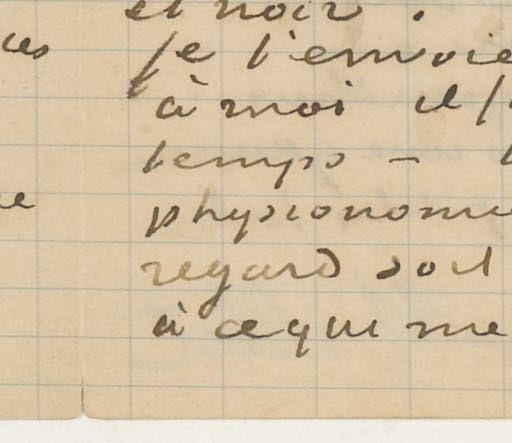 et noir.
ces
je t'envoie
à moi il
temps –
physionomie
regard soit
à ce qui me